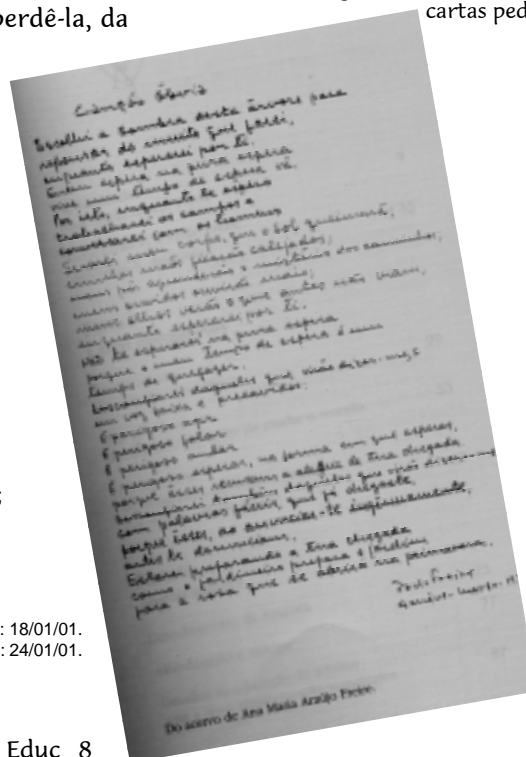 perdê-la, da
cartas ped
Canção Óbvia
Escolhi a sombra desta árvore para
repousar do muito que farei,
enquanto esperarei por ti.
Quem espera na pura espera
vive um tempo de espera vã.
Por isto, enquanto te espero
trabalharei os campos e
conversarei com os homens
Suarei meu corpo, que o sol queimará;
minhas mãos ficarão calejadas;
meus pés aprenderão o mistério dos caminhos;
meus ouvidos ouvirão mais;
meus olhos verão o que antes não viam,
enquanto esperarei por ti.
Não te esperarei na pura espera
porque o meu tempo de espera é um
tempo de quefazer.
Desconfiarei daqueles que virão dizer-me,
em voz baixa e precavidos:
É perigoso agir
É perigoso falar
É perigoso andar
É perigoso esperar, na forma em que esperas,
porque esses recusam a alegria de tua chegada.
Desconfiarei também daqueles que virão dizer-me
com palavras fáceis, que já chegaste,
porque esses, ao anunciar-te ingenuamente,
antes te denunciam.
Estarei preparando a tua chegada
como o jardineiro prepara o jardim
para a rosa que se abrirá na primavera.
Paulo Freire
Genève - Março - 
Do acervo de Ana Maria Araújo Freire.
: 18/01/01.
: 24/01/01.
Educ 8